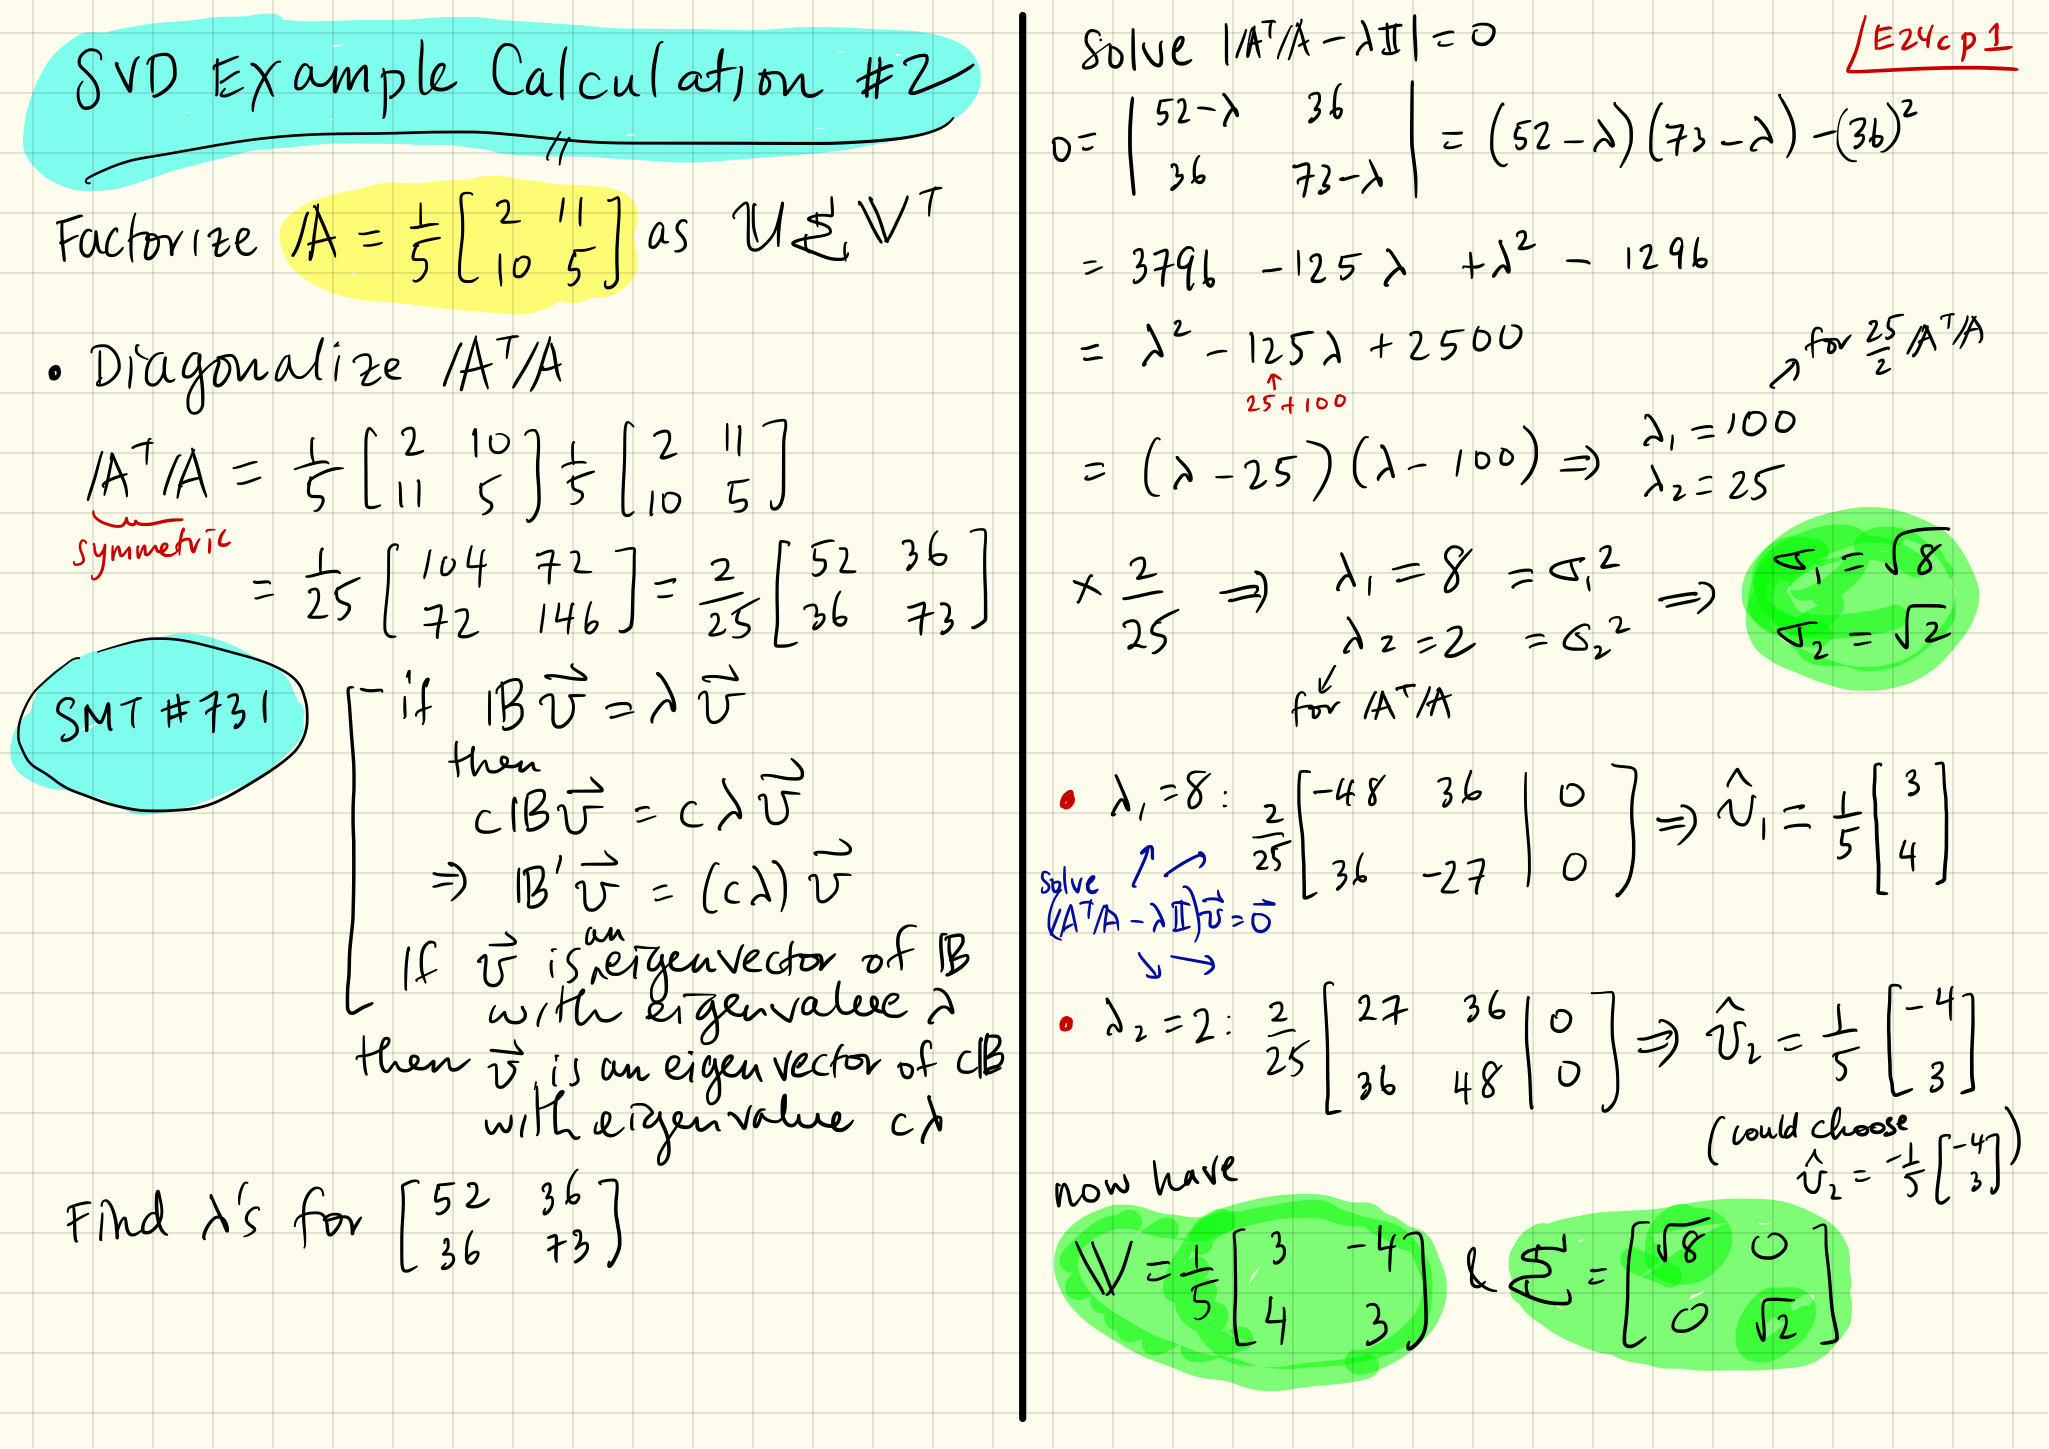 SVD Example Calculation #2
Factorize 𝔸 = 1/5 [2 11; 10 5] as 𝕌Σ𝕍ᵀ
• Diagonalize 𝔸ᵀ𝔸
𝔸ᵀ𝔸 = 1/5 [2 10; 11 5] 1/5 [2 11; 10 5]
symmetric
= 1/25 [104 72; 72 146] = 2/25 [52 36; 36 73]
SMT #731
- if 𝔹v⃗ = λv⃗
then
c𝔹v⃗ = cλv⃗
⇒ 𝔹'v⃗ = (cλ)v⃗
If v⃗ is an eigenvector of 𝔹
with eigenvalue λ
then v⃗ is an eigenvector of c𝔹
with eigenvalue cλ
Find λ's for [52 36; 36 73]
E24cp1
Solve |𝔸ᵀ𝔸 - λ𝕀| = 0
0 = |52-λ 36; 36 73-λ| = (52-λ)(73-λ) - (36)²
= 3796 - 125λ + λ² - 1296
= λ² - 125λ + 2500
↑
25 + 100
↗ for 25/2 𝔸ᵀ𝔸
= (λ - 25)(λ - 100) ⇒ λ₁ = 100
λ₂ = 25
× 2/25 ⇒ λ₁ = 8 = σ₁² ⇒ σ₁ = √8
λ₂ = 2 = σ₂² σ₂ = √2
↙
for 𝔸ᵀ𝔸
• λ₁ = 8: 2/25 [-48 36 | 0; 36 -27 | 0] ⇒ v̂₁ = 1/5 [3; 4]
Solve
(𝔸ᵀ𝔸 - λ𝕀)v⃗ = 0⃗
• λ₂ = 2: 2/25 [27 36 | 0; 36 48 | 0] ⇒ v̂₂ = 1/5 [-4; 3]
(could choose
v̂₂ = -1/5 [-4; 3])
now have
𝕍 = 1/5 [3 -4; 4 3] & Σ = [√8 0; 0 √2]